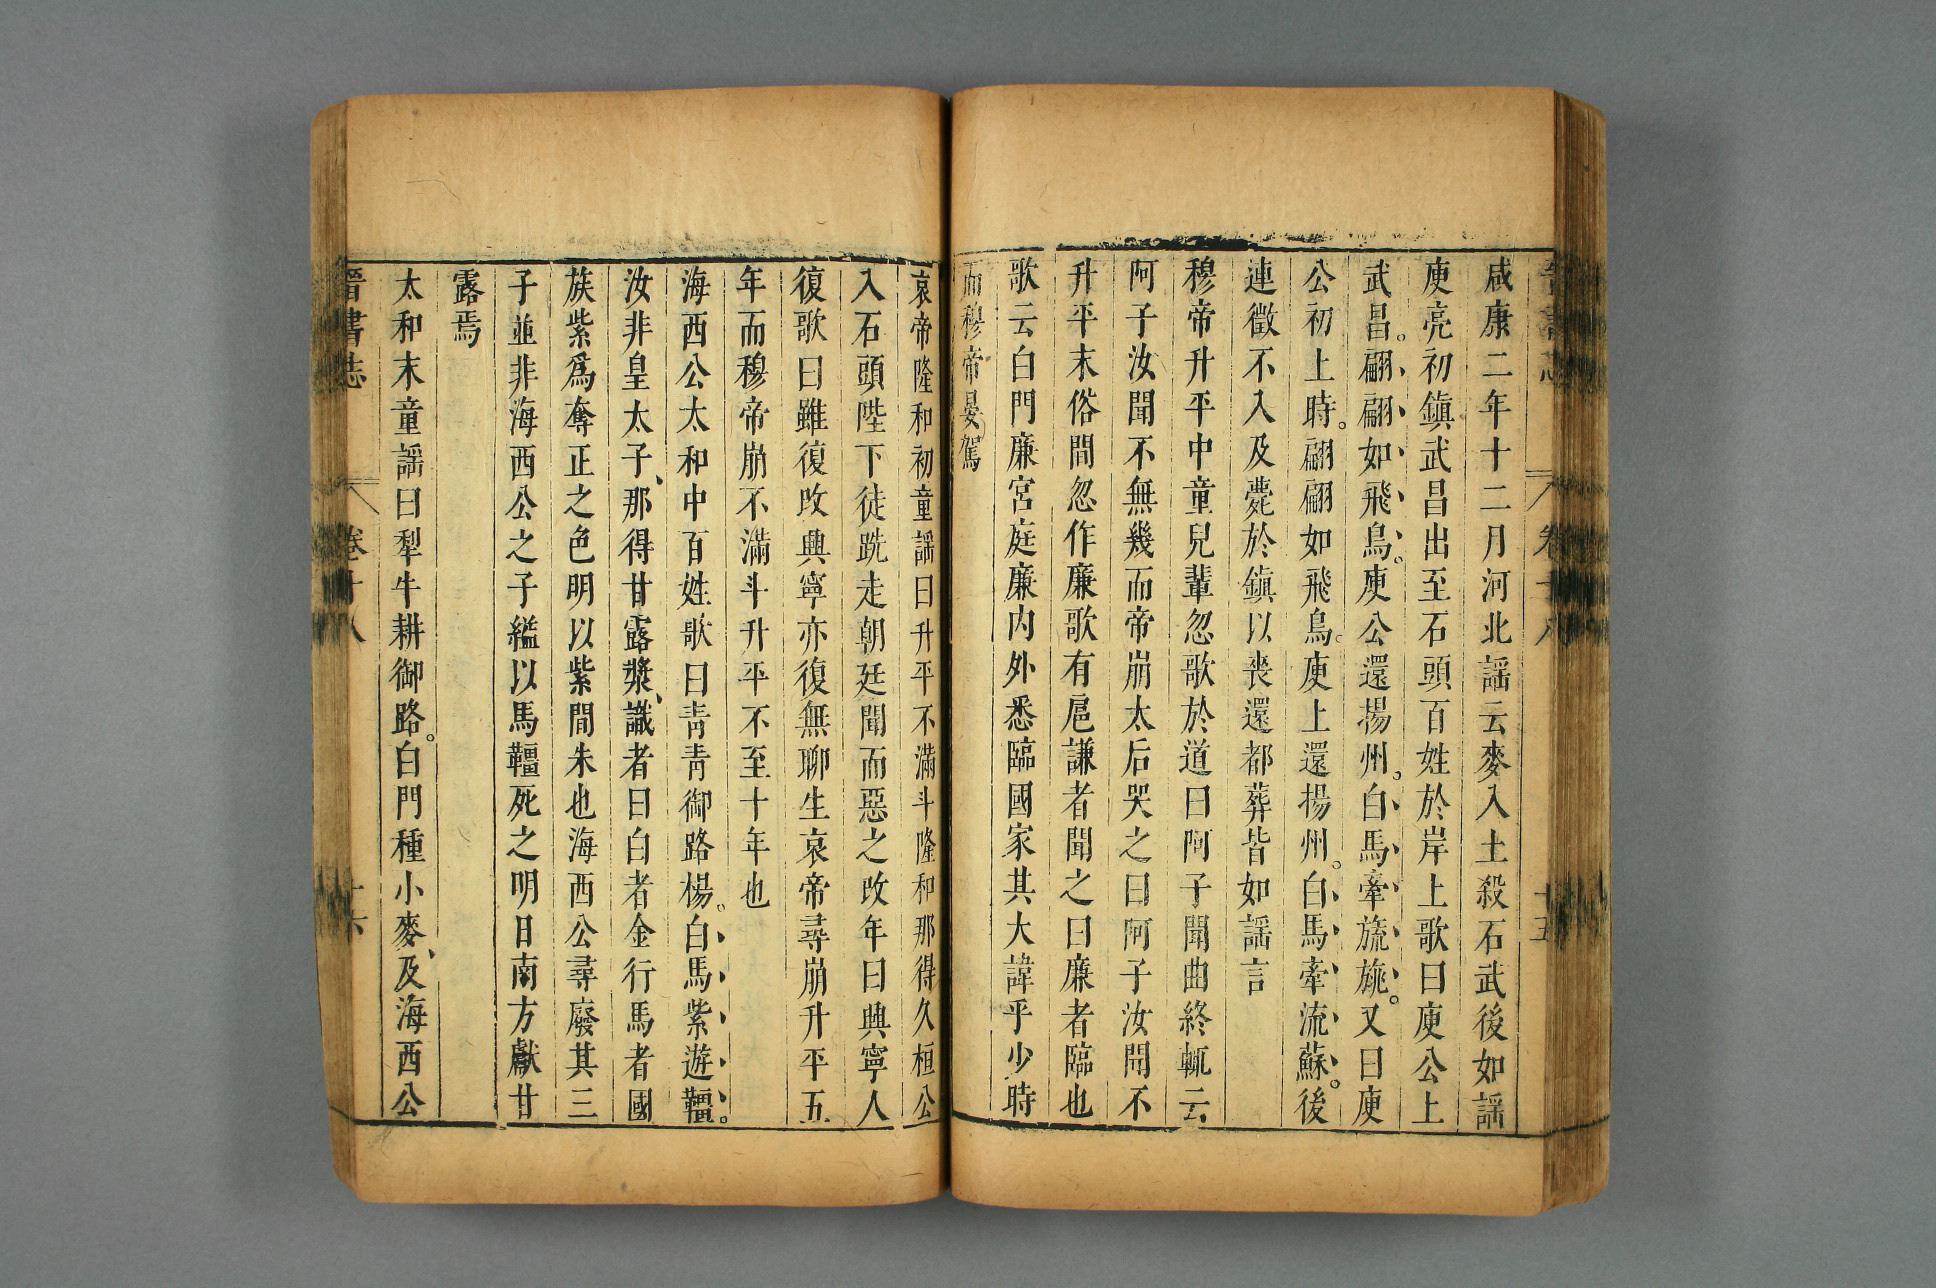 咸康二年十二月河北謠云麥入土殺石武後如謠
庾亮初鎮武昌出至石頭百姓於岸上歌曰庾公上
武昌。翩翩如飛鳥。庾公還揚州。白馬牽旒旐。又曰庾
公初上時。翩翩如飛鳥。庾上還揚州。白馬牽流蘇。後
連徵不入及薨於鎮以喪還都葬皆如謠言
穆帝升平中童兒輩忽歌於道曰阿子聞曲終輒云
阿子汝聞不無幾而帝崩太后哭之曰阿子汝聞不
升平末俗間忽作廉歌有扈謙者聞之曰廉者臨也
歌云白門廉宮庭廉内外悉臨國家其大諱乎少時
而穆帝晏駕
哀帝隆和初童謠曰升平不滿斗隆和那得久桓公
入石頭陛下徒跣走朝廷聞而惡之改年曰興寧人
復歌曰雖復改興寧亦復無聊生哀帝尋崩升平五
年而穆帝崩不滿斗升平不至十年也
海西公太和中百姓歌曰青青御路楊。白馬紫遊韁。
汝非皇太子、那得甘露漿、識者曰白者金行馬者國
族紫爲奪正之色明以紫間朱也海西公尋廢其三
子並非海西公之子縊以馬韁死之明日南方獻甘
露焉
太和末童謠曰犁牛耕御路。白門種小麥、及海西公
晉書志 卷廿八 十六